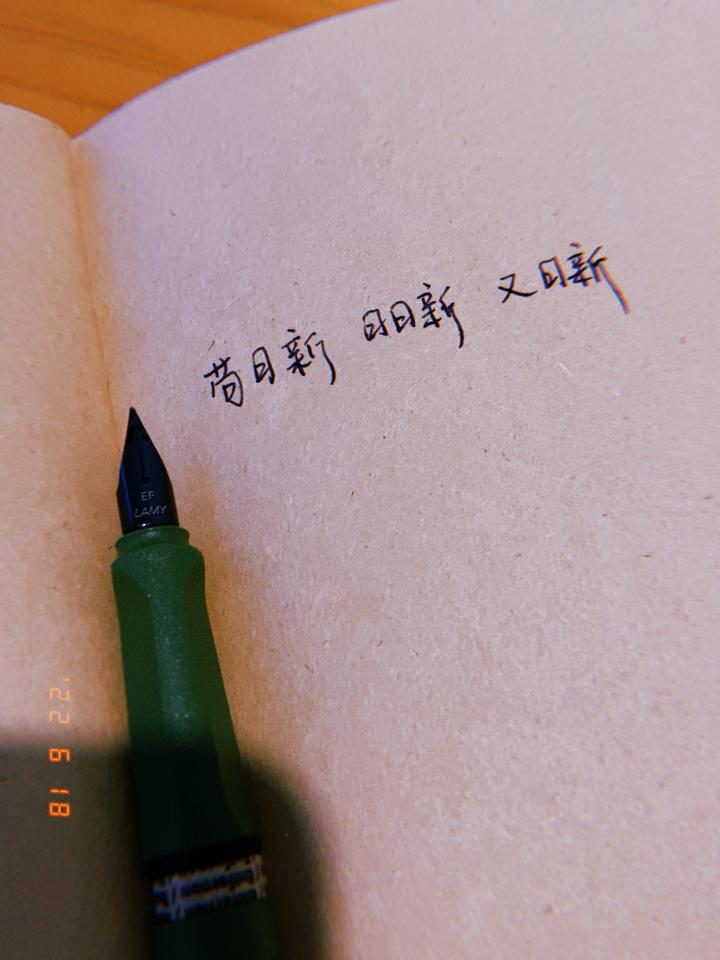 苟日新 日日新 又日新
EF
LAMY
'22 6 18